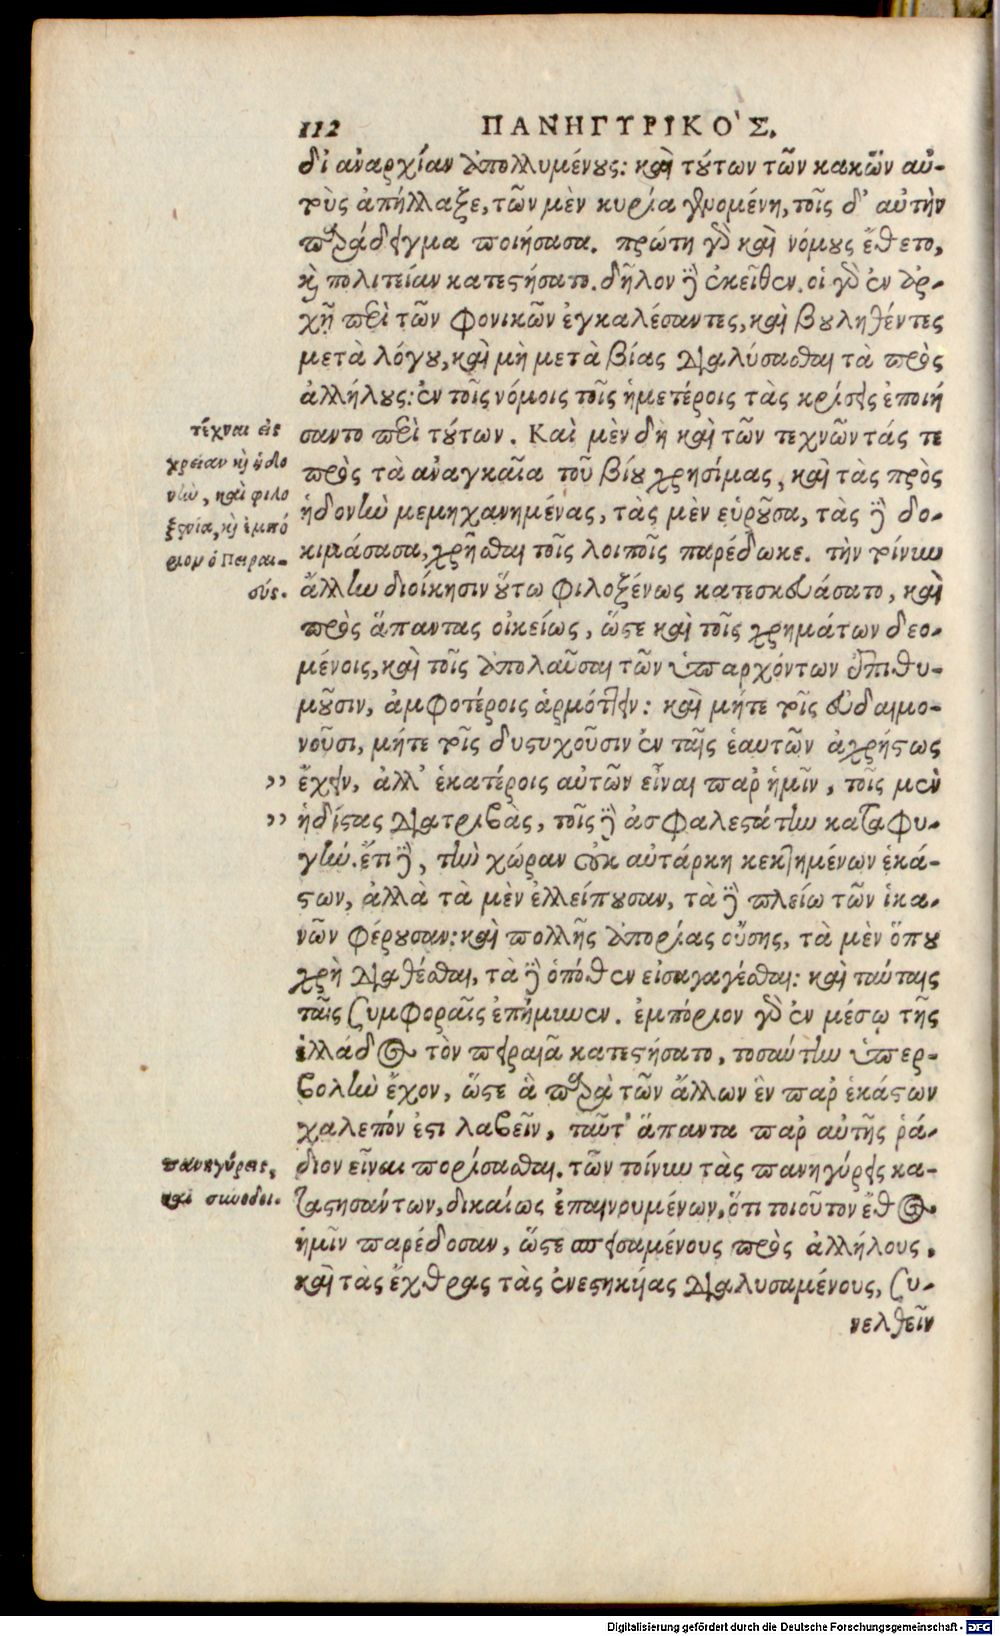 112 ΠΑΝΗΓΥΡΙΚΟ'Σ.
δι' ἀναρχίαν ἀπολλυμένους: καὶ τούτων τῶν κακῶν αὐ-
τοὺς ἀπήλλαξε, τῶν μὲν κυρία γενομένη, τοῖς δ' αὑτὴν
παράδειγμα ποιήσασα. πρώτη γὰρ καὶ νόμους ἔθετο,
καὶ πολιτείαν κατεστήσατο. δῆλον δὲ ἐκεῖθεν. οἱ γὰρ ἐν ἀρ-
χῇ περὶ τῶν φονικῶν ἐγκαλέσαντες, καὶ βουληθέντες
μετὰ λόγου, καὶ μὴ μετὰ βίας διαλύσασθαι τὰ πρὸς
ἀλλήλους: ἐν τοῖς νόμοις τοῖς ἡμετέροις τὰς κρίσεις ἐποιή
σαντο περὶ τούτων. Καὶ μὲν δὴ καὶ τῶν τεχνῶν τάς τε
πρὸς τὰ ἀναγκαῖα τοῦ βίου χρησίμας, καὶ τὰς πρὸς
ἡδονὴν μεμηχανημένας, τὰς μὲν εὑροῦσα, τὰς δὲ δο-
κιμάσασα, χρῆσθαι τοῖς λοιποῖς παρέδωκε. τὴν τοίνυν
ἄλλην διοίκησιν οὕτω φιλοξένως κατεσκευάσατο, καὶ
πρὸς ἅπαντας οἰκείως, ὥστε καὶ τοῖς χρημάτων δεο-
μένοις, καὶ τοῖς ἀπολαῦσαι τῶν ὑπαρχόντων ἐπιθυ-
μοῦσιν, ἀμφοτέροις ἁρμόττειν: καὶ μήτε τοῖς εὐδαιμο-
νοῦσι, μήτε τοῖς δυστυχοῦσιν ἐν ταῖς ἑαυτῶν ἀχρήστως
,, ἔχειν, ἀλλ' ἑκατέροις αὐτῶν εἶναι παρ' ἡμῖν, τοῖς μὲν
,, ἡδίστας διατριβὰς, τοῖς δὲ ἀσφαλεστάτην καταφυ-
γήν. ἔτι δὲ, τὴν χώραν οὐκ αὐτάρκη κεκτημένων ἑκά-
στων, ἀλλὰ τὰ μὲν ἐλλείπουσαν, τὰ δὲ πλείω τῶν ἱκα-
νῶν φέρουσαν: καὶ πολλῆς ἀπορίας οὔσης, τὰ μὲν ὅπου
χρὴ διαθέσθαι, τὰ δὲ ὁπόθεν εἰσαγαγέσθαι: καὶ ταύταις
ταῖς συμφοραῖς ἐπήμυνεν. ἐμπόριον γὰρ ἐν μέσῳ τῆς
ἑλλάδος τὸν πειραιᾶ κατεστήσατο, τοσαύτην ὑπερ-
βολὴν ἔχον, ὥστε ἃ παρὰ τῶν ἄλλων ἓν παρ' ἑκάστων
χαλεπόν ἐστι λαβεῖν, ταῦτ' ἅπαντα παρ' αὐτῆς ῥᾴ-
διον εἶναι πορίσασθαι. τῶν τοίνυν τὰς πανηγύρεις κα-
ταστησάντων, δικαίως ἐπαινουμένων, ὅτι τοιοῦτον ἔθος
ἡμῖν παρέδοσαν, ὥστε σπεισαμένους πρὸς ἀλλήλους,
καὶ τὰς ἔχθρας τὰς ἐνεστηκυίας διαλυσαμένους, συ-
νελθεῖν
τέχναι εἰς
χρείαν καὶ ἡδο
νὴν, καὶ φιλο
ξενία, καὶ ἐμπό
ριον ὁ Πειραι-
εύς.
πανηγύρεις,
καὶ σύνοδοι.
Digitalisierung gefördert durch die Deutsche Forschungsgemeinschaft - DFG